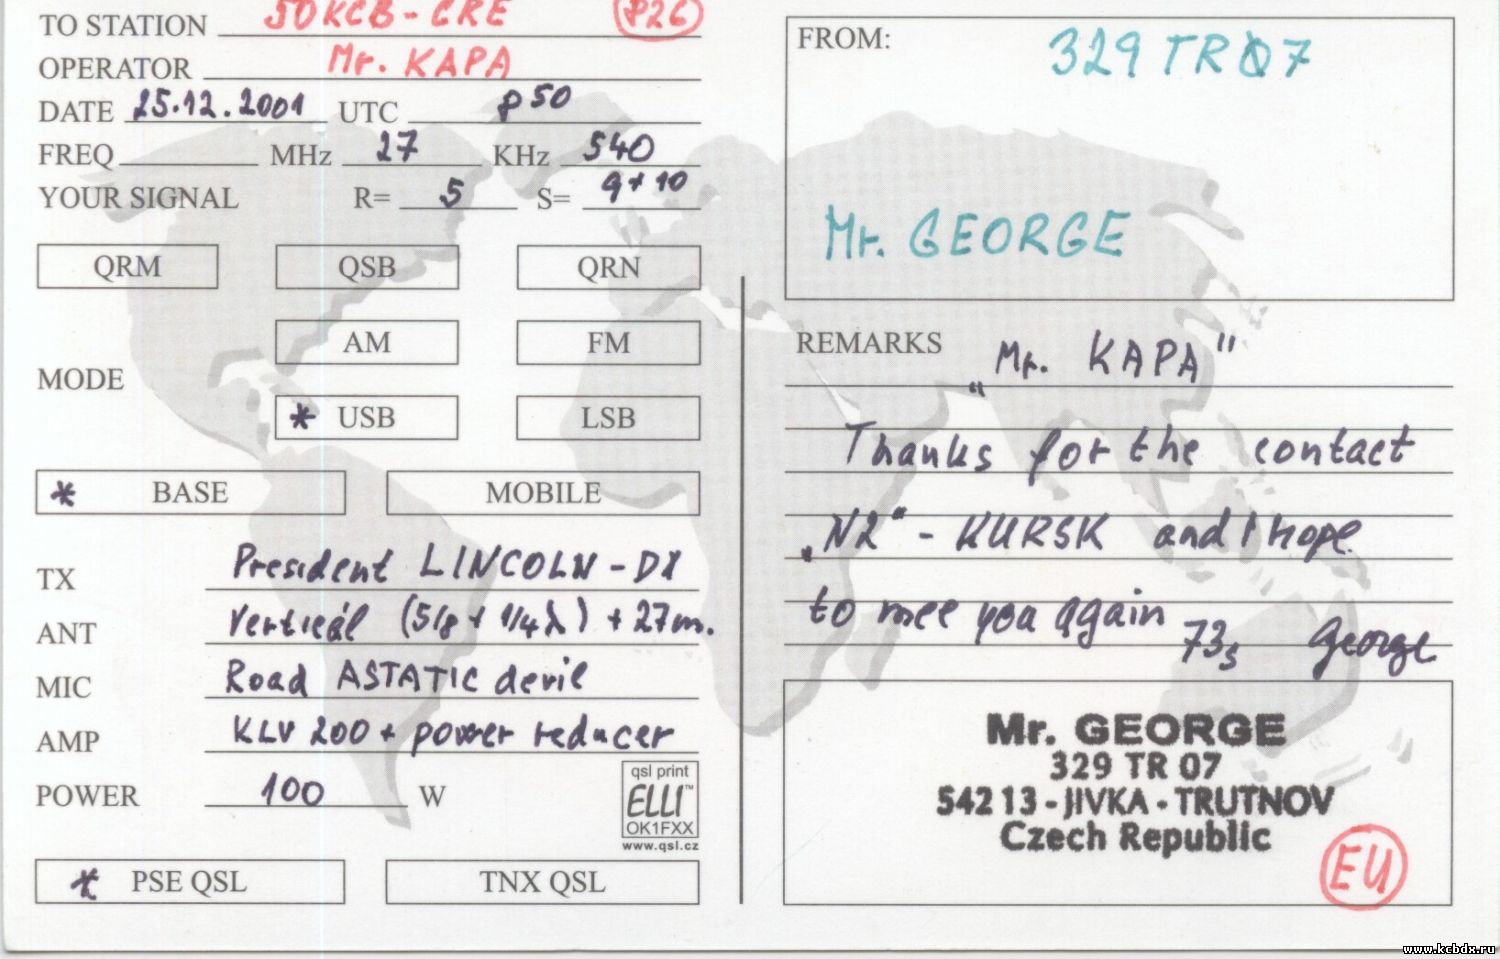 TO STATION 50KCB-CRE P26
OPERATOR Mr. KAPA
DATE 25.12.2001 UTC 0850
FREQ MHz 27 KHz 540
YOUR SIGNAL R= 5 S= 9+10
QRM QSB QRN
MODE
AM FM
* USB LSB
* BASE MOBILE
TX President LINCOLN - DX
ANT Verticál (5/8 + 1/4 λ) + 27m.
MIC Road ASTATIC devil
AMP KLV 200 + power reducer
POWER 100 W
qsl print
ELLI™
OK1FXX
www.qsl.cz
* PSE QSL TNX QSL
FROM: 329 TR07
Mr. GEORGE
REMARKS „Mr. KAPA"
Thanks for the contact
„N2" - KURSK and I hope
to mee you again 73s George
Mr. GEORGE
329 TR 07
542 13 - JIVKA - TRUTNOV
Czech Republic
EU
www.kcbdx.ru